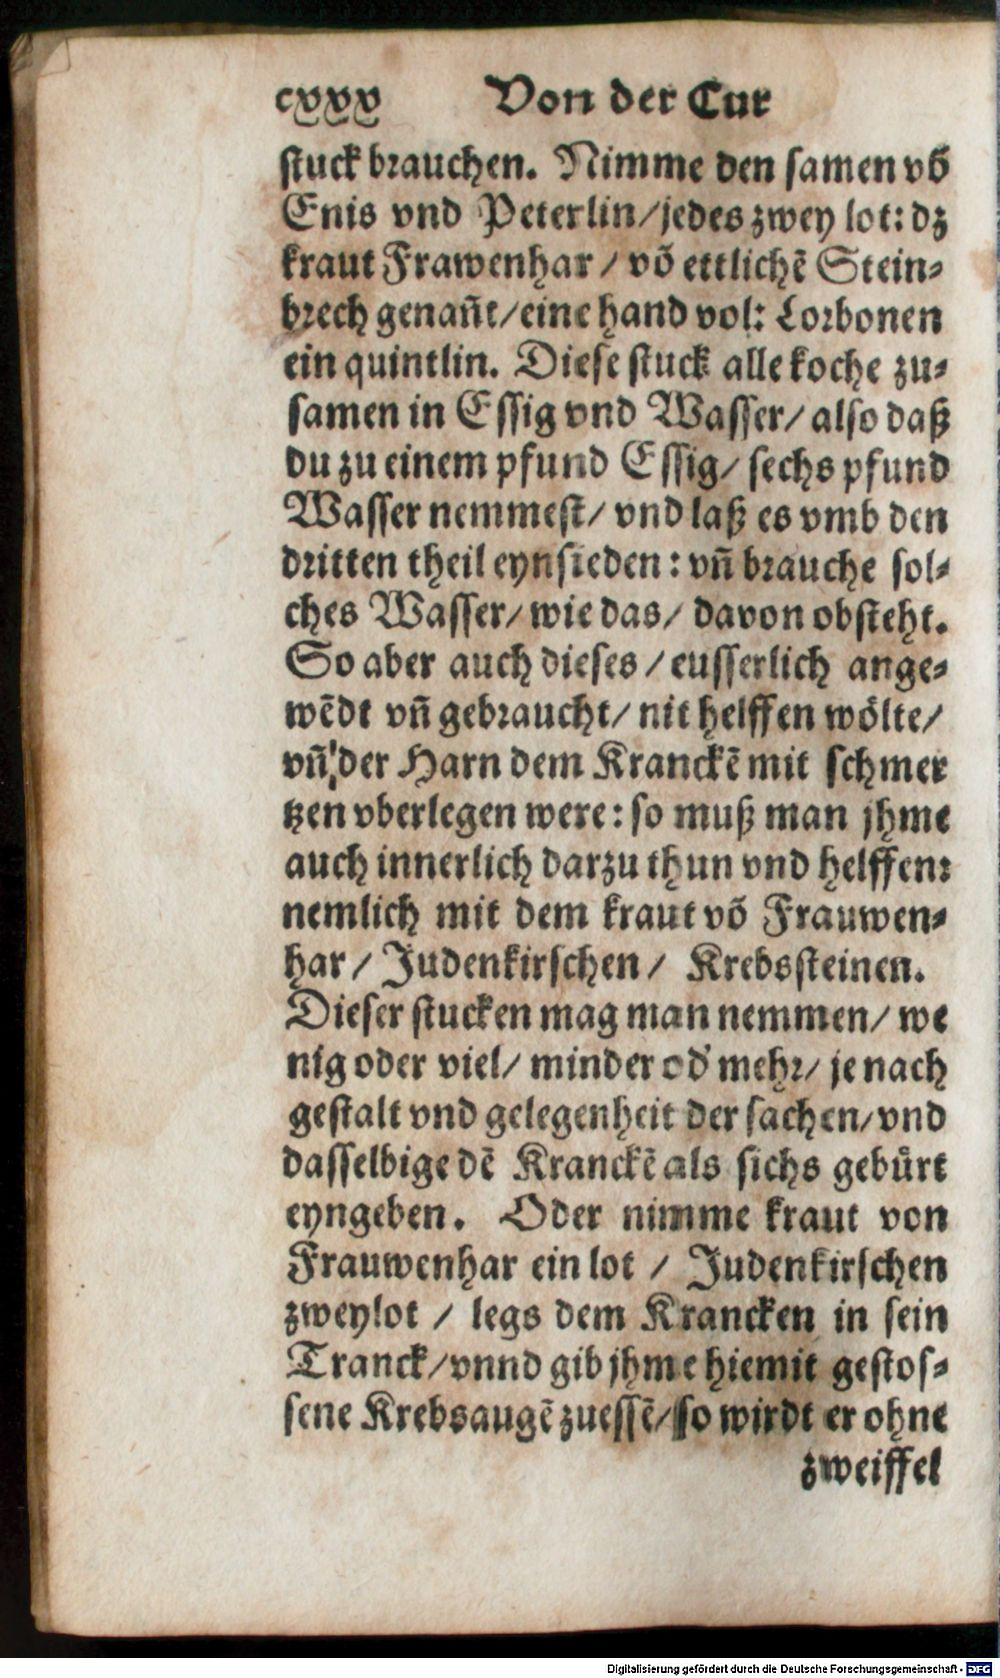 cxxx Von der Cur
stuck brauchen. Nimme den samen võ
Enis vnd Peterlin/jedes zwey lot: dz
kraut Frawenhar / võ ettlichẽ Stein-
brech genañt/eine hand vol: Lorbonen
ein quintlin. Diese stuck alle koche zu-
samen in Essig vnd Wasser/ also daß
du zu einem pfund Essig/ sechs pfund
Wasser nemmest/ vnd laß es vmb den
dritten theil eynsieden: vñ brauche sol-
ches Wasser/ wie das/ davon obsteht.
So aber auch dieses / eusserlich ange-
wẽdt vñ gebraucht/ nit helffen wölte/
vñ der Harn dem Kranckẽ mit schmer
tzen vberlegen were: so muß man jhme
auch innerlich darzu thun vnd helffen:
nemlich mit dem kraut võ Frauwen-
har / Judenkirschen / Krebssteinen.
Dieser stucken mag man nemmen/ we
nig oder viel/ minder od' mehr/ je nach
gestalt vnd gelegenheit der sachen/vnd
dasselbige dẽ Kranckẽ als sichs gebürt
eyngeben. Oder nimme kraut von
Frauwenhar ein lot / Judenkirschen
zwey lot / legs dem Krancken in sein
Tranck/vnnd gib jhme hiemit gestos-
sene Krebsaugẽ zuessẽ/so wirdt er ohne
zweiffel
Digitalisierung gefördert durch die Deutsche Forschungsgemeinschaft - DFG